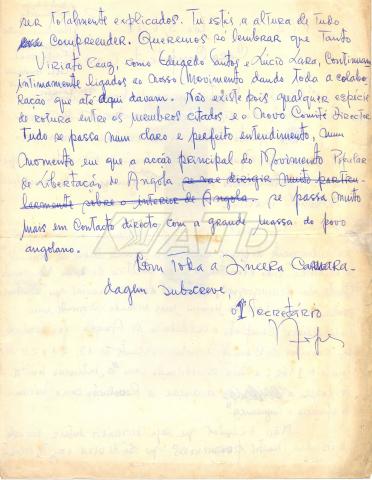 ser totalmente explicados. Tu estás à altura de tudo
compreender. Queremos só lembrar que tanto
Viriato Cruz, como Eduardo Santos e Lucio Lara, continuam
intimamente ligados ao nosso Movimento dando toda a colabo-
ração que até aqui davam. Não existe pois qualquer espécie
de rotura entre os membros citados e o novo Comité Director
Tudo se passa num claro e perfeito entendimento, num
momento em que a acção principal do Movimento Popular
de Libertação de Angola se vae dirigir muito particu-
larmente sobre o interior de Angola. se passa muito
mais em contacto directo com a grande massa do povo
angolano.
ATD
Com toda a sincera camara-
dagem subscreve,
o 1º Secretário